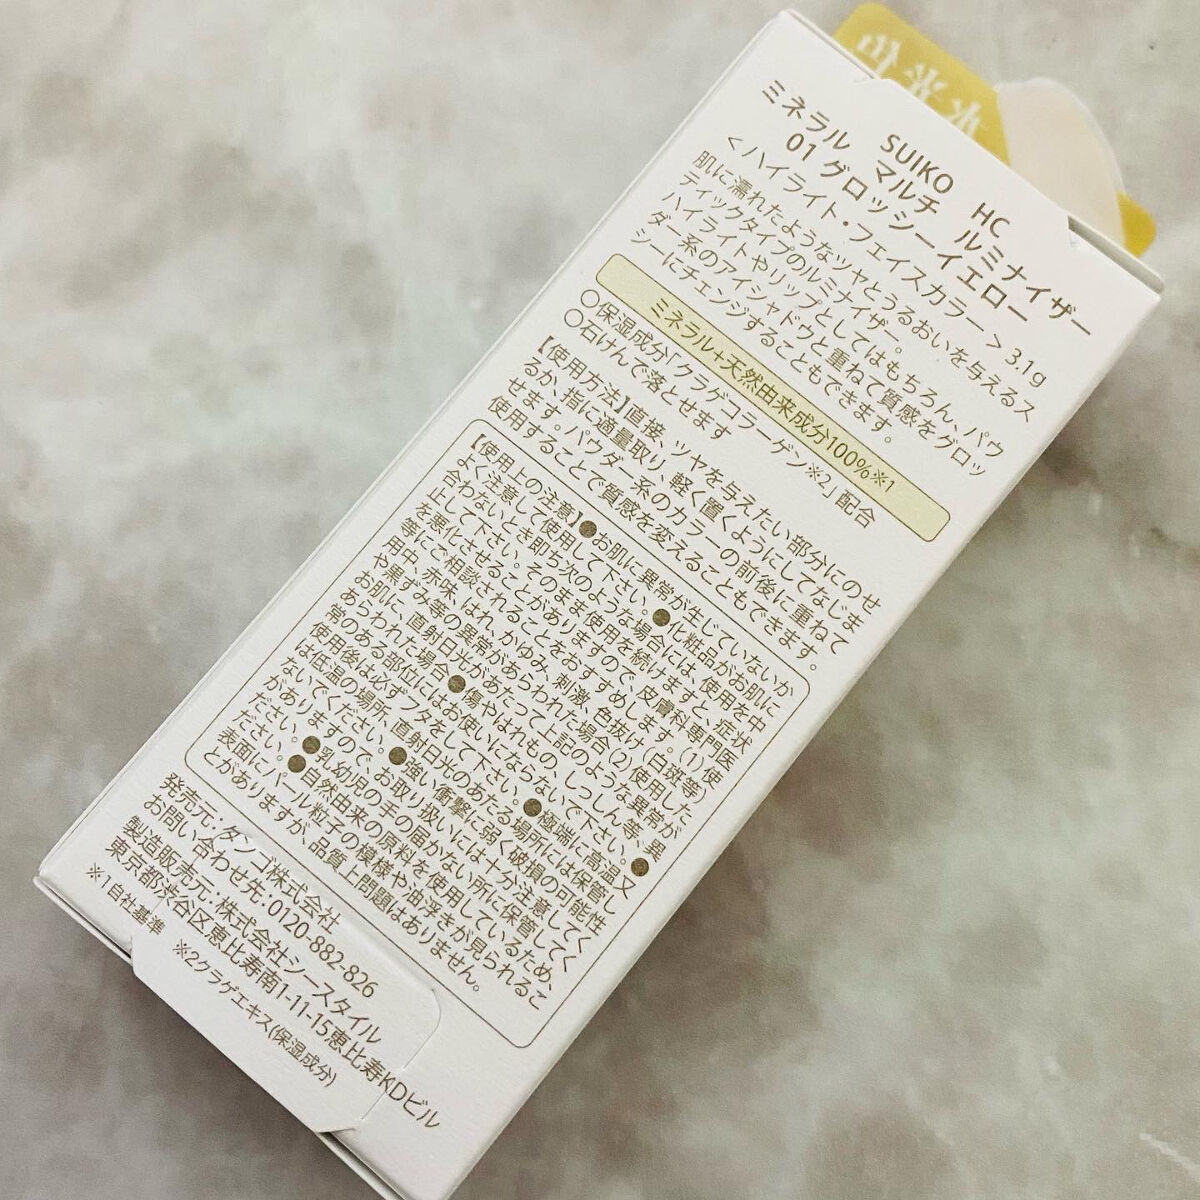 水光肌
SUIKO HC
ミネラル マルチ ルミナイザー
01 グロッシーイエロー
<ハイライト・フェイスカラー> 3.1g
肌に濡れたようなツヤとうるおいを与えるス
ティックタイプのルミナイザー。
ハイライトやリップとしてはもちろん、パウ
ダー系のアイシャドウと重ねて質感をグロッ
シーにチェンジすることもできます。
ミネラル+天然由来成分100%※1
○保湿成分「クラゲコラーゲン※2」配合
○石けんで落とせます
【使用方法】直接、ツヤを与えたい部分にのせ
るか、指に適量取り、軽く置くようにしてなじま
せます。パウダー系のカラーの前後に重ねて
使用することで質感を変えることもできます。
【使用上の注意】●お肌に異常が生じていないか
よく注意して使用して下さい。●化粧品がお肌に
合わないとき即ち次のような場合には、使用を中
止して下さい。そのまま使用を続けますと、症状
を悪化させることがありますので、皮膚科専門医
等にご相談されることをおすすめします。(1)使
用中、赤味、はれ、かゆみ、刺激、色抜け(白斑等)
や黒ずみ等の異常があらわれた場合(2)使用した
お肌に、直射日光があたって上記のような異常が
あらわれた場合●傷やはれもの、しっしん等、異
常のある部位にはお使いにならないで下さい。●
使用後は必ずフタをして下さい。●極端に高温又
は低温の場所、直射日光のあたる場所には保管し
ないでください。●強い衝撃に弱く破損の可能性
がありますので、お取り扱いには十分注意してく
ださい。●乳幼児の手の届かない所に保管してく
ださい。●自然由来の原料を使用しているため、
表面にパール粒子の模様や油浮きが見られるこ
とがありますが、品質上問題はありません。
発売元:タンゴ株式会社
お問い合わせ先:0120-882-826
製造販売元:株式会社シースタイル
東京都渋谷区恵比寿南1-11-15恵比寿KDビル
※1自社基準 ※2クラゲエキス(保湿成分)